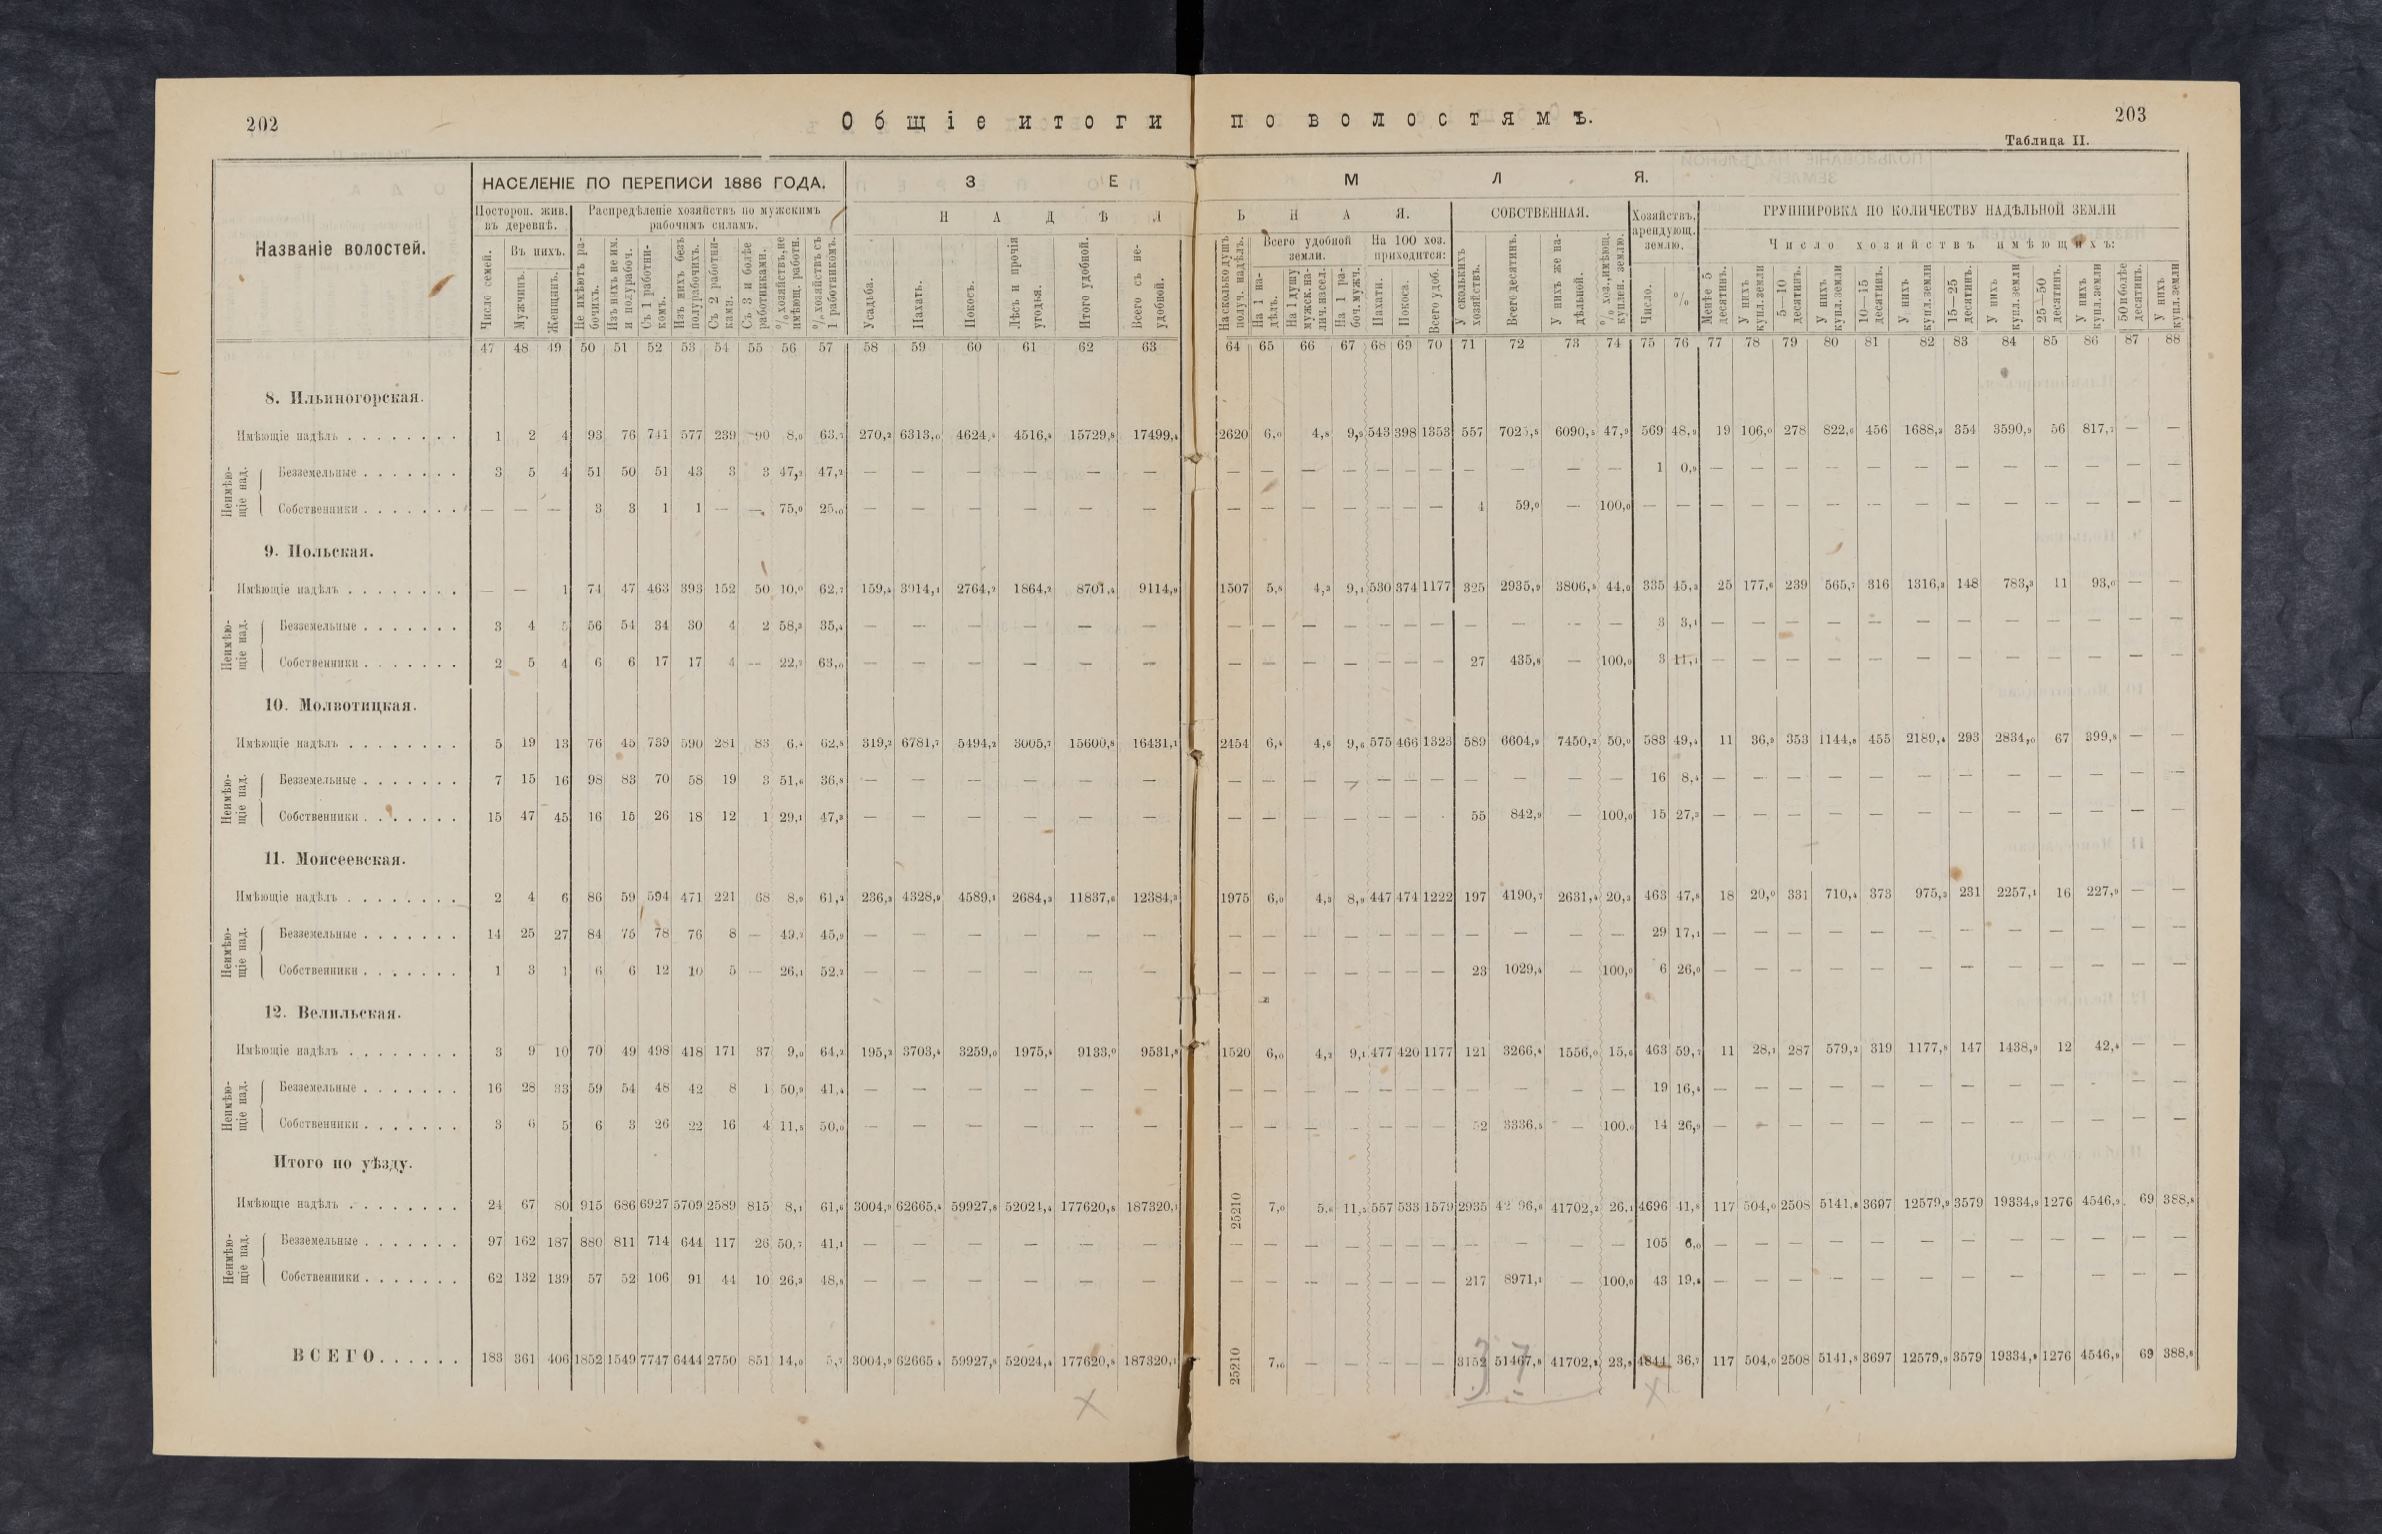 202
Общіе итоги по волостямъ.
203
Таблица II.
Названіе волостей.
НАСЕЛЕНІЕ ПО ПЕРЕПИСИ 1886 ГОДА.
З Е М Л Я.
Посторон. жив. въ деревнѣ.
Распредѣленіе хозяйствъ по мужскимъ рабочимъ силамъ.
Н А Д Ѣ Л Ь Н А Я.
СОБСТВЕННАЯ.
Хозяйствъ, арендующ. землю.
ГРУППИРОВКА ПО КОЛИЧЕСТВУ НАДѢЛЬНОЙ ЗЕМЛИ
Число семей.
Въ нихъ.
Мужчинъ.
Женщинъ.
Не имѣютъ рабочихъ.
Изъ нихъ не им. и полурабоч.
Съ 1 работникомъ.
Изъ нихъ безъ полурабочихъ.
Съ 2 работниками.
Съ 3 и болѣе работниками.
% хозяйствъ, не имѣющ. работн.
% хозяйствъ съ 1 работникомъ.
Усадьба.
Пахать.
Покосъ.
Лѣсъ и прочія угодья.
Итого удобной.
Всего съ неудобной.
На сколько душъ получ. надѣлъ.
Всего удобной земли.
На 1 надѣлъ.
На 1 душу мужск. налич. насел.
На 1 рабоч. мужч.
На 100 хоз. приходится:
Пахати.
Покоса.
Всего удоб.
У сколькихъ хозяйствъ.
Всего десятинъ.
У нихъ же надѣльной.
% хоз., имѣющ. куплен. землю.
Число.
%
Число хозяйствъ имѣющихъ:
Менѣе 5 десятинъ.
У нихъ купл. земли
5—10 десятинъ.
У нихъ купл. земли
10—15 десятинъ.
У нихъ купл. земли
15—25 десятинъ.
У нихъ купл. земли
25—50 десятинъ.
У нихъ купл. земли
50 и болѣе десятинъ.
У нихъ купл. земли
47 48 49 50 51 52 53 54 55 56 57 58 59 60 61 62 63 64 65 66 67 68 69 70 71 72 73 74 75 76 77 78 79 80 81 82 83 84 85 86 87 88
8. Ильиногорская.
Имѣющіе надѣлъ 1 2 4 93 76 741 577 239 90 8,0 63,7 270,2 6313,0 4624,4 4516,4 15729,8 17499,4 2620 6,0 4,8 9,9 543 398 1353 557 7025,8 6090,5 47,9 569 48,9 19 106,0 278 822,6 456 1688,3 354 3590,9 56 817,7 — —
Неимѣющіе над.
Безземельные 3 5 4 51 50 51 43 3 3 47,2 47,2 — — — — — — — — — — — — — — — — — 1 0,9 — — — — — — — — — — — —
Собственники — — — 3 3 1 1 — — 75,0 25,0 — — — — — — — — — — — — — 4 59,0 — 100,0 — — — — — — — — — — — — — —
9. Польская.
Имѣющіе надѣлъ — — 1 74 47 463 393 152 50 10,0 62,7 159,4 3914,1 2764,2 1864,2 8701,4 9114,9 1507 5,8 4,3 9,1 530 374 1177 325 2935,9 3806,5 44,0 335 45,3 25 177,6 239 565,7 316 1316,3 148 783,3 11 93,0 — —
Неимѣющіе над.
Безземельные 3 4 5 56 54 34 30 4 2 58,3 35,4 — — — — — — — — — — — — — — — — — 3 3,1 — — — — — — — — — — — —
Собственники 2 5 4 6 6 17 17 4 — 22,2 63,0 — — — — — — — — — — — — — 27 435,8 — 100,0 3 11,1 — — — — — — — — — — — —
10. Молвотицкая.
Имѣющіе надѣлъ 5 19 13 76 45 739 590 281 83 6,4 62,8 319,2 6781,7 5494,2 3005,7 15600,8 16431,1 2454 6,4 4,6 9,6 575 466 1323 589 6604,9 7450,2 50,0 583 49,4 11 36,9 353 1144,8 455 2189,4 293 2834,0 67 399,8 — —
Неимѣющіе над.
Безземельные 7 15 16 98 83 70 58 19 3 51,6 36,8 — — — — — — — — — — — — — — — — — 16 8,4 — — — — — — — — — — — —
Собственники 15 47 45 16 15 26 18 12 1 29,1 47,3 — — — — — — — — — — — — — 55 842,9 — 100,0 15 27,3 — — — — — — — — — — — —
11. Моисеевская.
Имѣющіе надѣлъ 2 4 6 86 59 594 471 221 68 8,9 61,3 236,3 4328,9 4589,1 2684,3 11837,6 12384,3 1975 6,0 4,3 8,9 447 474 1222 197 4190,7 2631,4 20,3 463 47,8 18 20,0 331 710,4 373 975,3 231 2257,1 16 227,9 — —
Неимѣющіе над.
Безземельные 14 25 27 84 75 78 76 8 — 49,2 45,9 — — — — — — — — — — — — — — — — — 29 17,1 — — — — — — — — — — — —
Собственники 1 3 1 6 6 12 10 5 — 26,1 52,2 — — — — — — — — — — — — — 23 1029,4 — 100,0 6 26,0 — — — — — — — — — — — —
12. Велильская.
Имѣющіе надѣлъ 3 9 10 70 49 498 418 171 37 9,0 64,2 195,2 3703,4 3259,0 1975,4 9133,0 9531,8 1520 6,0 4,2 9,1 477 420 1177 121 3266,4 1556,0 15,6 463 59,7 11 28,1 287 579,2 319 1177,8 147 1438,9 12 42,4 — —
Неимѣющіе над.
Безземельные 16 28 33 59 54 48 42 8 1 50,9 41,4 — — — — — — — — — — — — — — — — — 19 16,4 — — — — — — — — — — — —
Собственники 3 6 5 6 3 26 22 16 4 11,5 50,0 — — — — — — — — — — — — — 52 3336,5 — 100,0 14 26,9 — — — — — — — — — — — —
Итого по уѣзду.
Имѣющіе надѣлъ 24 67 80 915 686 6927 5709 2589 815 8,1 61,6 3004,9 62665,4 59927,8 52024,4 177620,8 187320,1 25210 7,0 5,6 11,5 557 533 1579 2935 41702,2 26,1 4696 41,8 117 504,0 2508 5141,8 3697 12579,9 3579 19334,9 1276 4546,9 69 388,8
Неимѣющіе над.
Безземельные 97 162 187 880 811 714 644 117 26 50,7 41,1 — — — — — — — — — — — — — — — — — 105 6,0 — — — — — — — — — — — —
Собственники 62 132 139 57 52 106 91 44 10 26,3 48,8 — — — — — — — — — — — — — 217 8971,1 — 100,0 43 19,8 — — — — — — — — — — — —
ВСЕГО 183 361 406 1852 1549 7747 6444 2750 851 14,0 3004,9 62665,4 59927,8 52024,4 177620,8 187320,1 25210 7,0 — — — — — 3152 51467,8 41702,2 23,8 4844 36,7 117 504,0 2508 5141,8 3697 12579,9 3579 19334,9 1276 4546,9 69 388,8
37